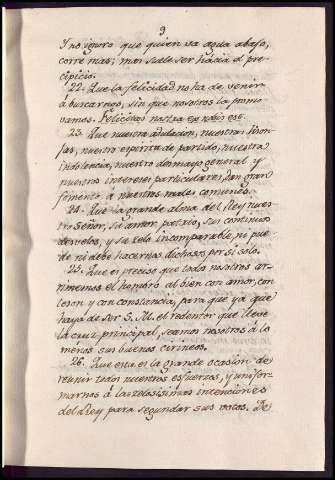 9
Y no ignoro que quien va agua abajo,
corre mas; mas suele ser hácia el pre-
cipicio.
22. Que la felicidad no ha de venir
á buscarnos, sin que nosotros la promo-
vamos. Felicitas nostra ex nobis est.
23. Que nuestra adulacion, nuestras lison-
jas, nuestro espiritu de partido, nuestra
indolencia, nuestro desmayo general y
nuestros intereses particulares, dan gran
fomento á nuestros males comunes.
24. Que la grande alma del Rey nues-
tro Señor, su amor patrio, sus continuos
desvelos, y su zelo incomparable, ni pue-
de ni debe hacernos dichosos por sí solo.
25. Que es preciso que todos nosotros ar-
rimemos el hombro al bien con amor, con
teson y con constancia, para que ya que
haya de ser S. M. el redentor que lleve
la cruz principal, seamos nosotros á lo
menos sus buenos cirineos.
26. Que esta es la grande ocasion de
reunir todos nuestros esfuerzos, y unifor-
marnos á las zelosisimas intenciones
del Rey para segundar sus votos. De